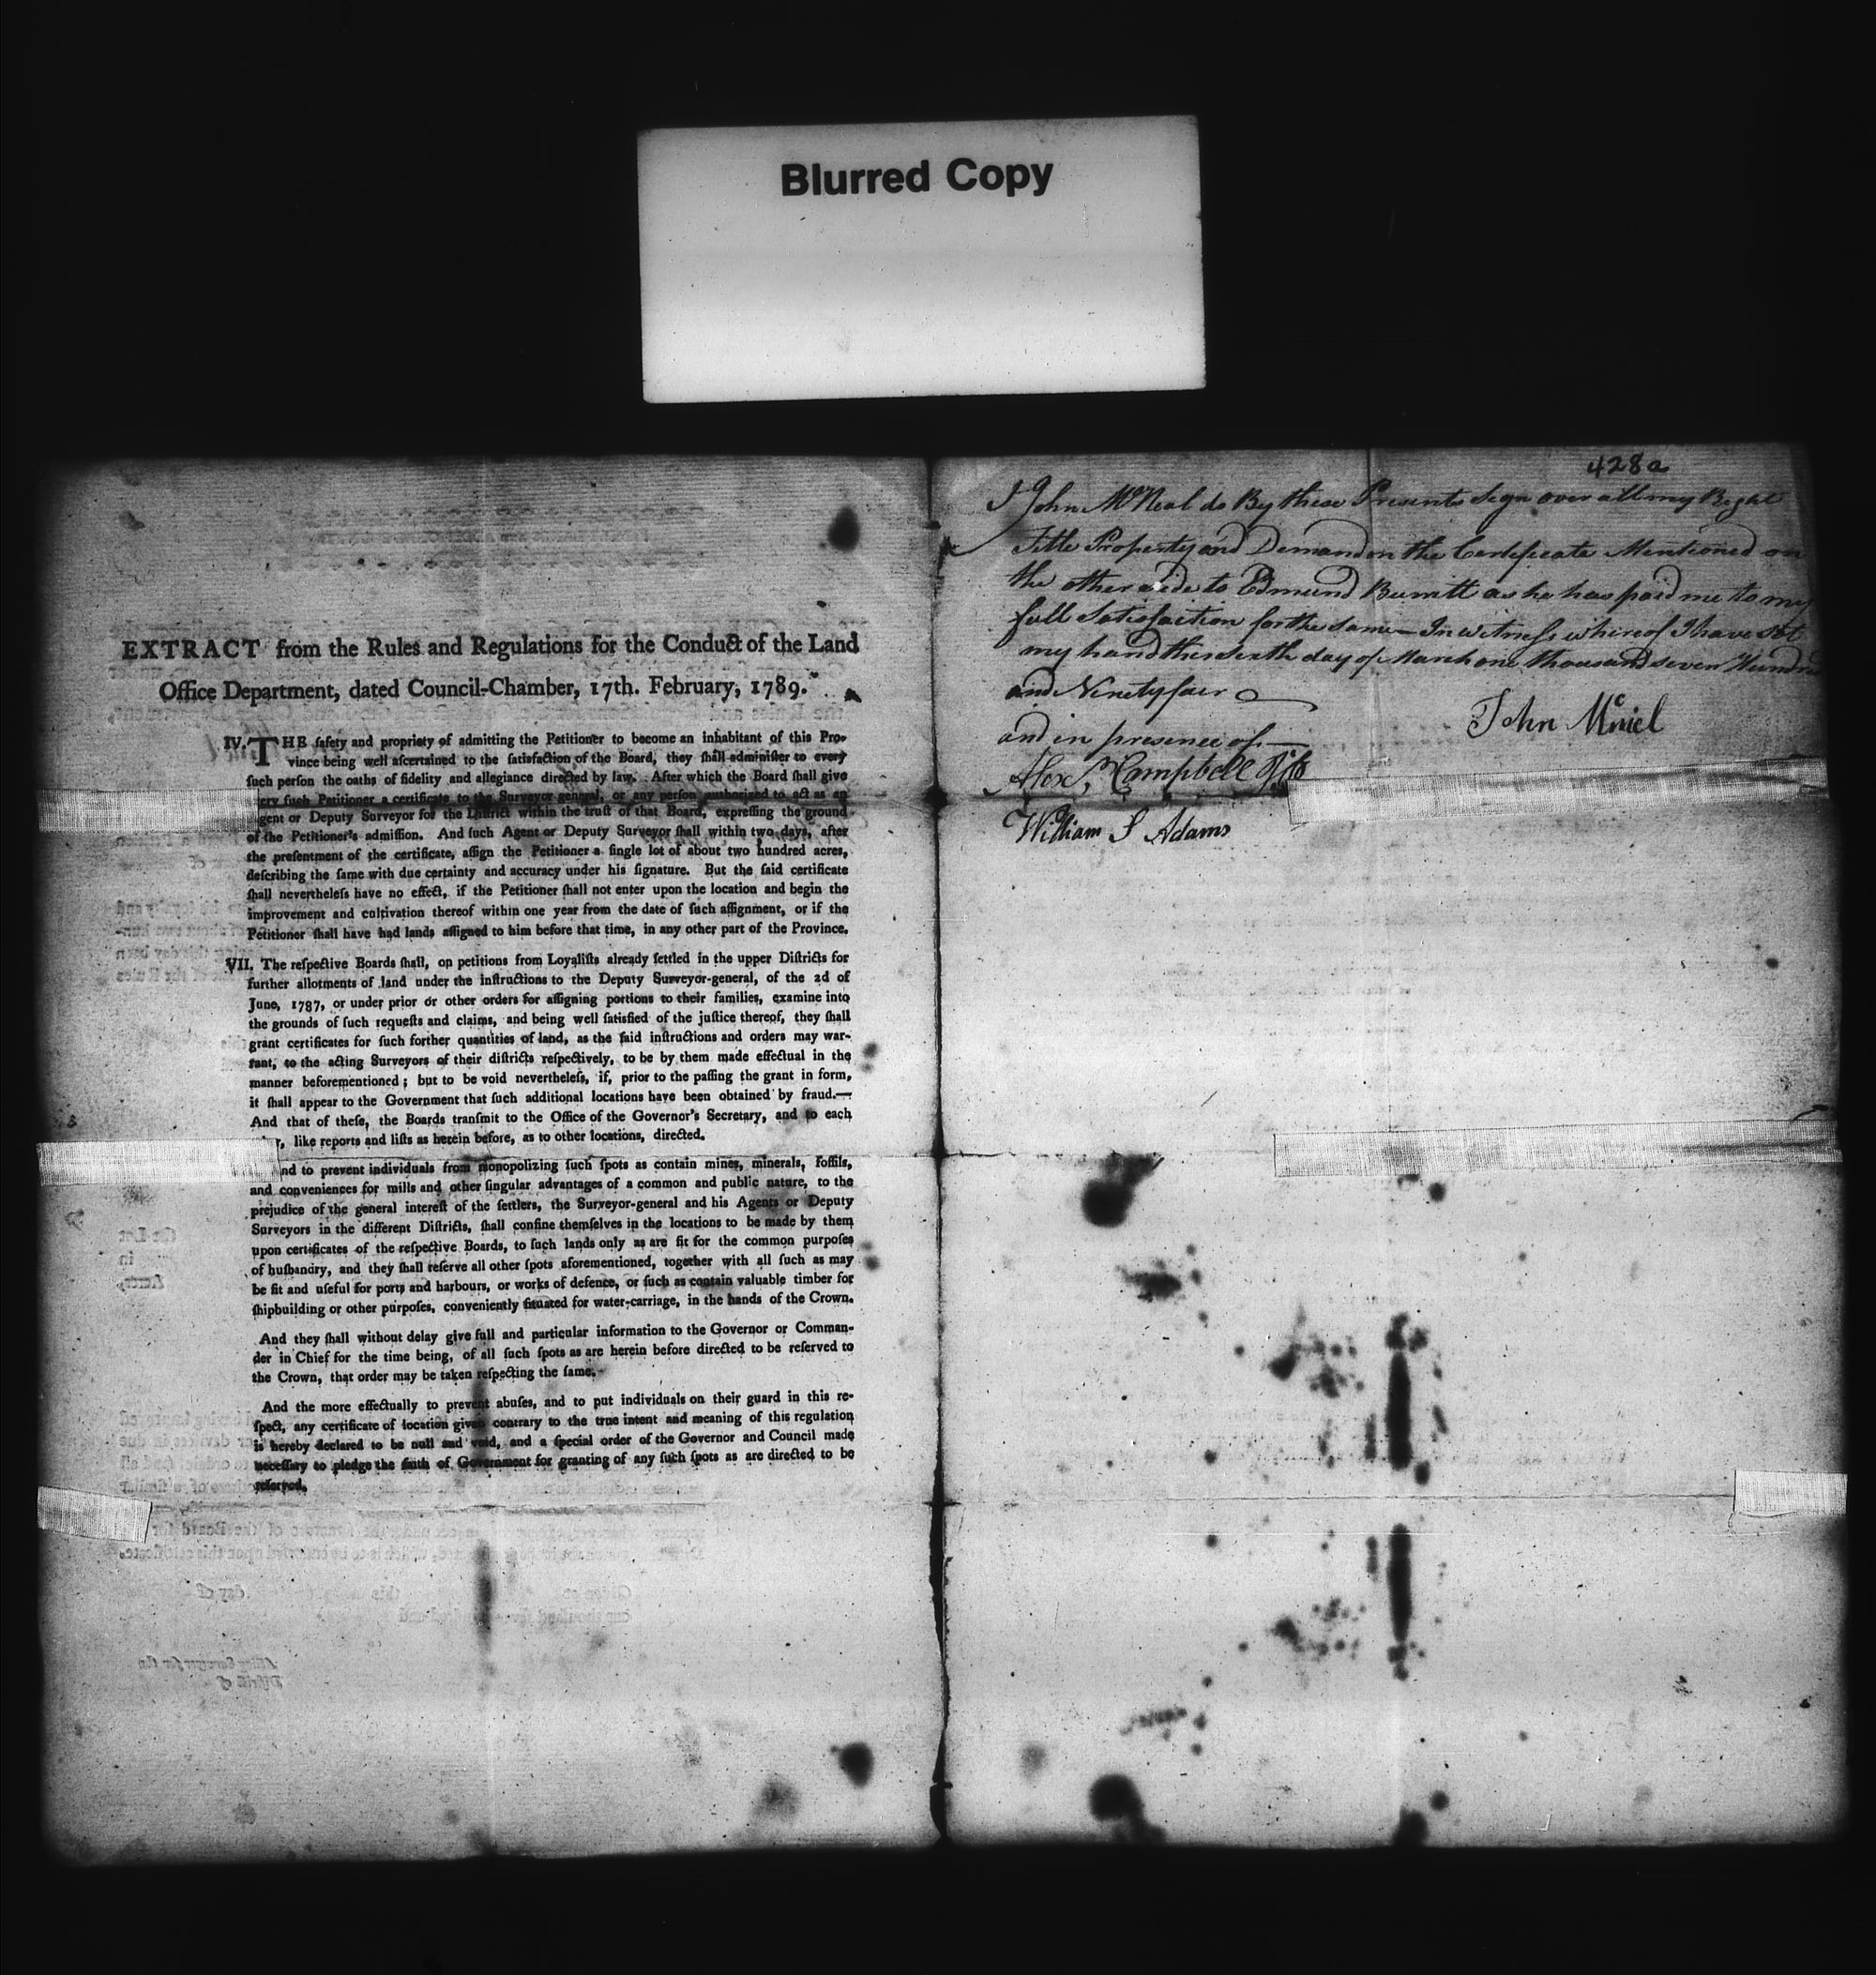 Blurred Copy
EXTRACT from the Rules and Regulations for the Conduct of the Land
Office Department, dated Council-Chamber, 17th. February, 1789.
IV. THE ſafety and propriety of admitting the Petitioner to become an inhabitant of this Pro-
vince being well aſcertained to the ſatisfaction of the Board, they ſhall adminiſter to every
ſuch perſon the oaths of fidelity and allegiance directed by law. After which the Board ſhall give
ery ſuch Petitioner a certificate to the Surveyor general, or any perſon authorized to act as an
gent or Deputy Surveyor for the Diſtrict within the truſt of that Board, expreſſing the ground
of the Petitioner's admiſſion. And ſuch Agent or Deputy Surveyor ſhall within two days, after
the preſentment of the certificate, aſſign the Petitioner a ſingle lot of about two hundred acres,
deſcribing the ſame with due certainty and accuracy under his ſignature. But the ſaid certificate
ſhall nevertheleſs have no effect, if the Petitioner ſhall not enter upon the location and begin the
improvement and cultivation thereof within one year from the date of ſuch aſſignment, or if the
Petitioner ſhall have had lands aſſigned to him before that time, in any other part of the Province.
VII. The reſpective Boards ſhall, on petitions from Loyaliſts already ſettled in the upper Diſtricts for
further allotments of land under the inſtructions to the Deputy Surveyor-general, of the 2d of
June, 1787, or under prior or other orders for aſſigning portions to their families, examine into
the grounds of ſuch requeſts and claims, and being well ſatisfied of the juſtice thereof, they ſhall
grant certificates for ſuch further quantities of land, as the ſaid inſtructions and orders may war-
rant, to the acting Surveyors of their diſtricts reſpectively, to be by them made effectual in the
manner beforementioned; but to be void nevertheleſs, if, prior to the paſſing the grant in form,
it ſhall appear to the Government that ſuch additional locations have been obtained by fraud.—
And that of theſe, the Boards tranſmit to the Office of the Governor's Secretary, and to each
r, like reports and liſts as herein before, as to other locations, directed.
nd to prevent individuals from monopolizing ſuch ſpots as contain mines, minerals, foſſils,
and conveniences for mills and other ſingular advantages of a common and public nature, to the
prejudice of the general intereſt of the ſettlers, the Surveyor-general and his Agents or Deputy
Surveyors in the different Diſtricts, ſhall confine themſelves in the locations to be made by them
upon certificates of the reſpective Boards, to ſuch lands only as are fit for the common purpoſes
of huſbandry, and they ſhall reſerve all other ſpots aforementioned, together with all ſuch as may
be fit and uſeful for ports and harbours, or works of defence, or ſuch as contain valuable timber for
ſhipbuilding or other purpoſes, conveniently ſituated for water-carriage, in the hands of the Crown.
And they ſhall without delay give full and particular information to the Governor or Comman-
der in Chief for the time being, of all ſuch ſpots as are herein before directed to be reſerved to
the Crown, that order may be taken reſpecting the ſame.
And the more effectually to prevent abuſes, and to put individuals on their guard in this re-
ſpect, any certificate of location given contrary to the true intent and meaning of this regulation
is hereby declared to be null and void, and a ſpecial order of the Governor and Council made
neceſſary to pledge the faith of Government for granting of any ſuch ſpots as are directed to be
reſerved.
428a
I John McNeal do By these Presents Sign over all my Right
Title Property and Demand on the Certificate Mentioned on
the other side to Edmund Burritt as he has paid me to my
full Satisfaction for the same — In witness whereof I have set
my hand this sixth day of March one thousand seven Hundre
and Ninety four
John McNiel
and in presence of —
Alexr Campbell
William S Adams